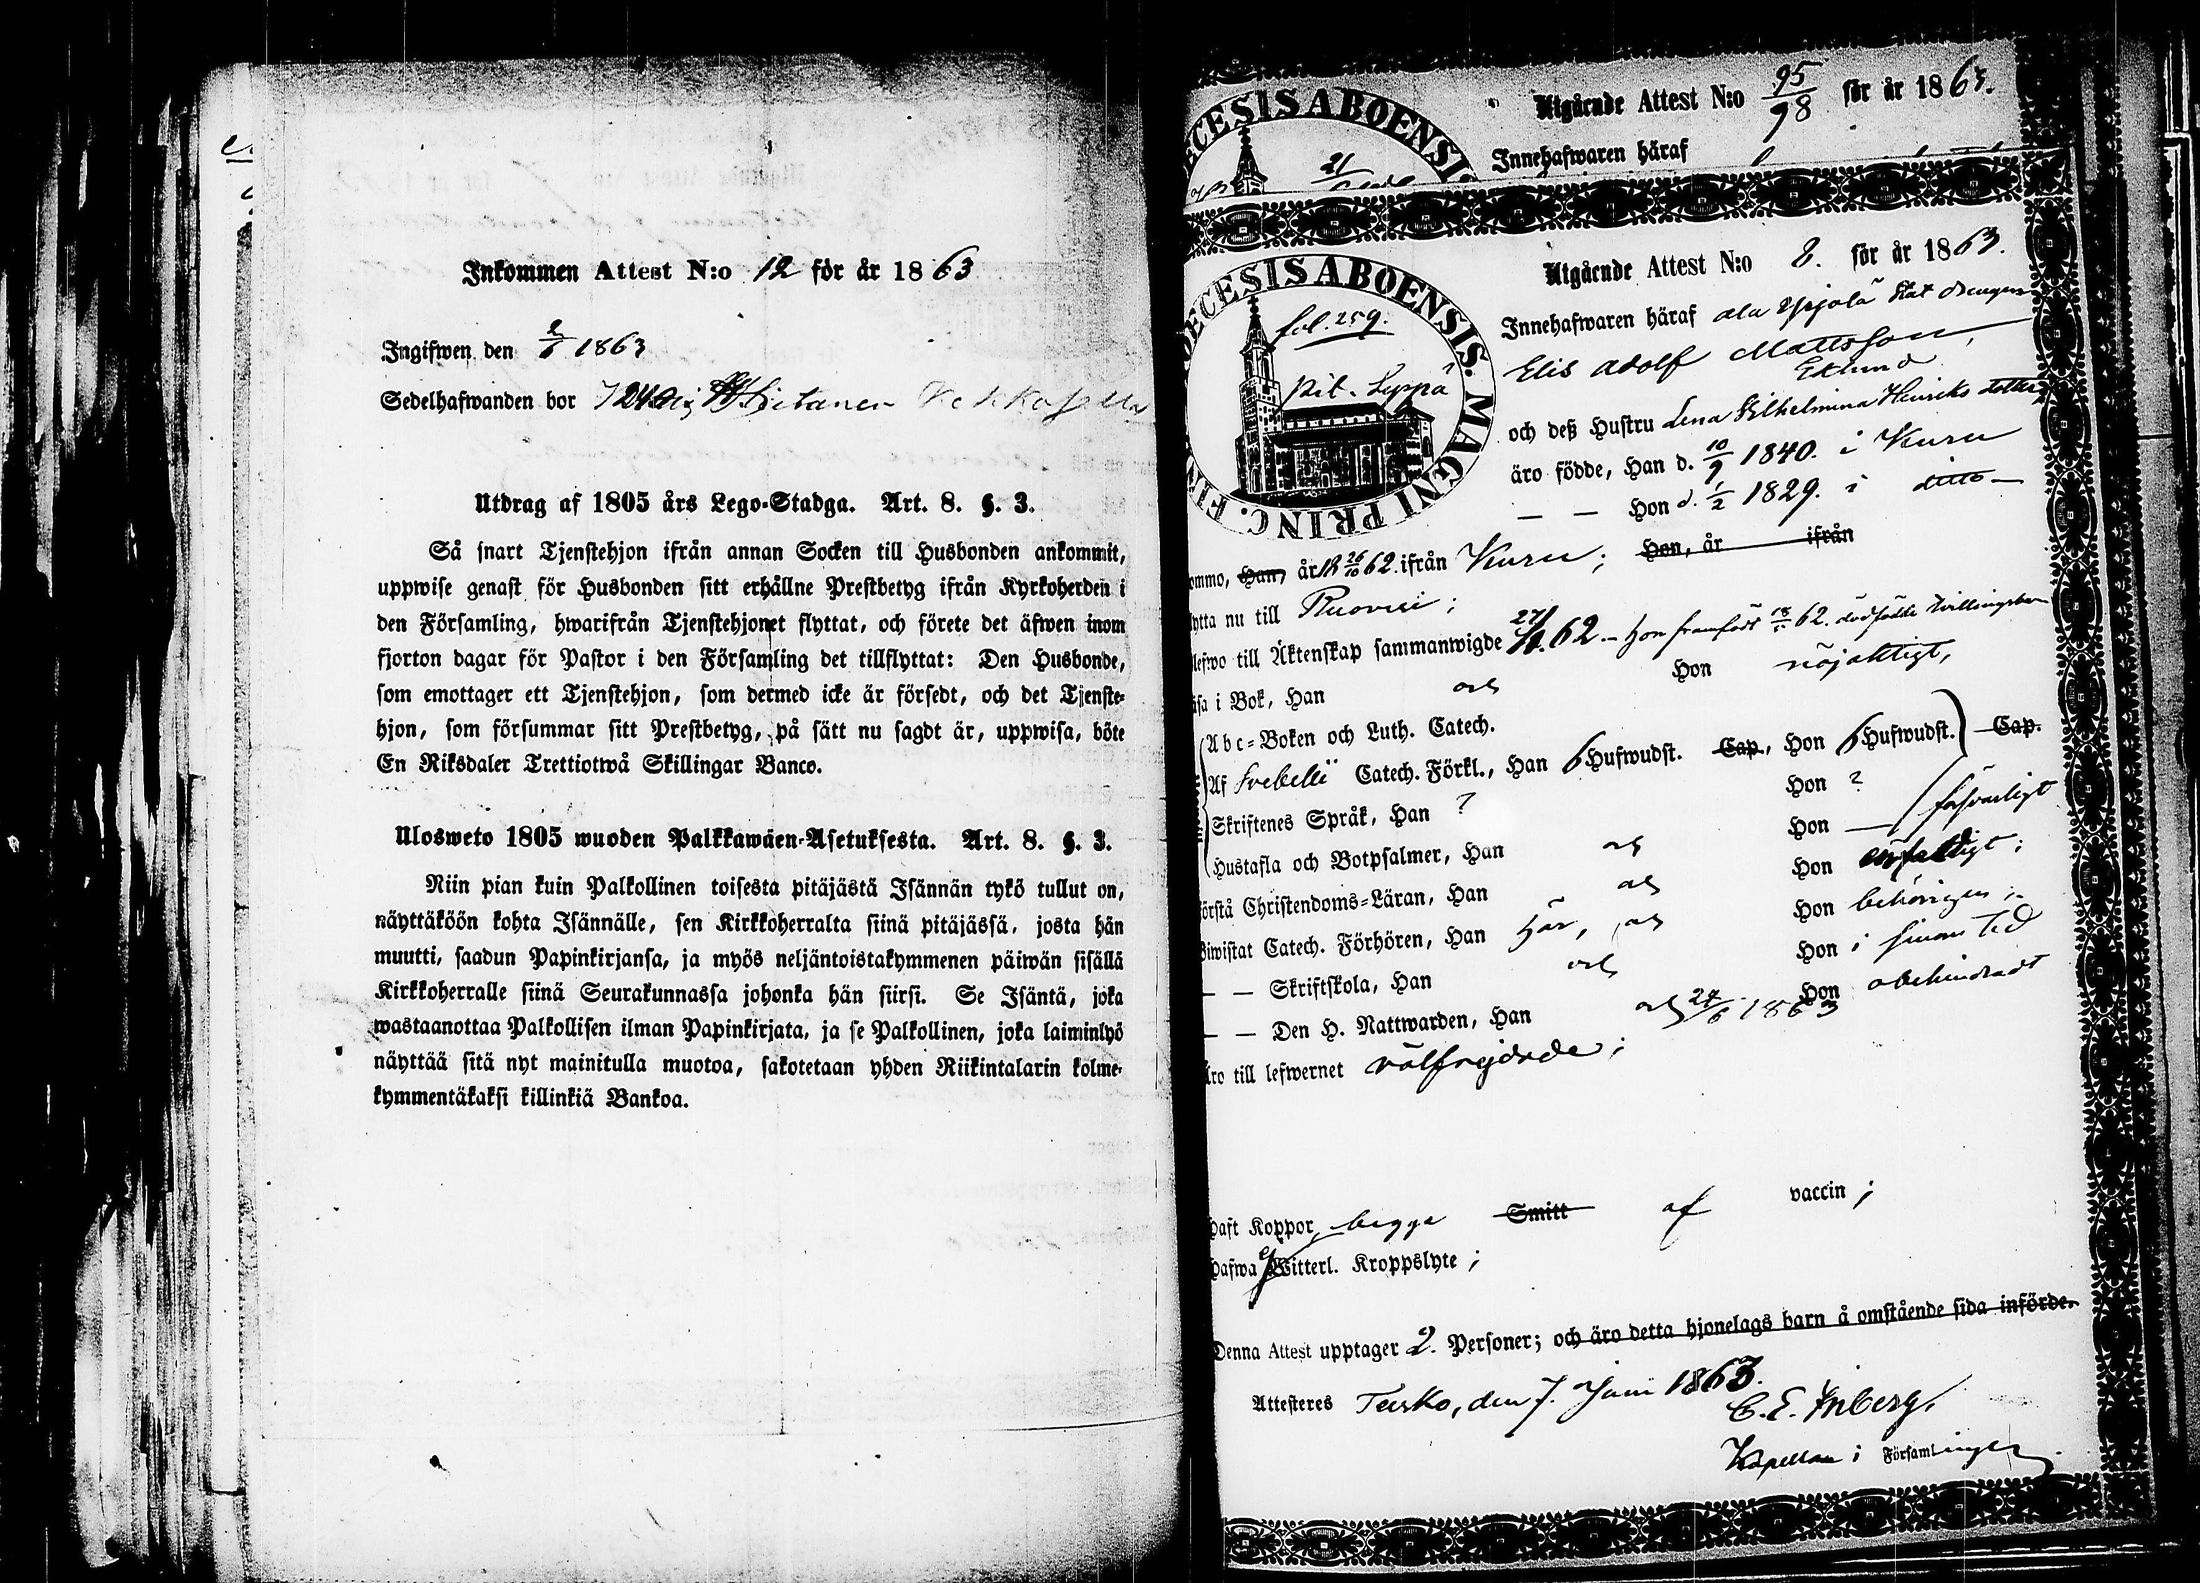 Inkommen Attest N:o 12 för år 1863
Ingifwen den 2/6 1863
Sedelhafwanden bor
Utdrag af 1805 års Lego-Stadga. Art. 8. §. 3.
Så snart Tjenstehjon ifrån annan Socken till Husbonden ankommit,
uppwise genast för Husbonden sitt erhållne Prestbetyg ifrån Kyrkoherden i
den Församling, hwarifrån Tjenstehjonet flyttat, och förete det äfwen inom
fjorton dagar för Pastor i den Församling det tillflyttat: Den Husbonde,
som emottager ett Tjenstehjon, som dermed icke är försedt, och det Tjenste-
hjon, som försummar sitt Prestbetyg, på sätt nu sagdt är, uppwisa, böte
En Riksdaler Trettiotwå Skillingar Banco.
Ulosweto 1805 wuoden Palkkawäen-Asetuksesta. Art. 8. §. 3.
Niin pian kuin Palkollinen toisesta pitäjästä Isännän tykö tullut on,
näyttäköön kohta Isännälle, sen Kirkkoherralta siinä pitäjässä, josta hän
muutti, saadun Papinkirjansa, ja myös neljäntoistakymmenen päiwän sisällä
Kirkkoherralle siinä Seurakunnassa johonka hän siirsi. Se Isäntä, joka
wastaanottaa Palkollisen ilman Papinkirjata, ja se Palkollinen, joka laiminlyö
näyttää sitä nyt mainitulla muotoa, sakotetaan yhden Riikintalarin kolme-
kymmentäkaksi killinkiä Bankoa.
ECESIS ABOENSIS
Utgående Attest N:o 95/98 för år 1863.
Innehafwaren häraf
OECESIS ABOENSIS. MAGNI PRINC. FIN
fol. 259.
Pit. Leppä
Utgående Attest N:o 8. för år 1863.
Innehafwaren häraf
Elis Adolf Mattsson,
Eklund
och deß Hustru Lena Wilhelmina Henriks dotter
äro födde, Han d. 10/9 1840. i Kuru
— — Hon d. 1/2 1829. i ditto —
ommo, Han, år 18 26/10 62. ifrån Kuru; Hon, år ifrån
lytta nu till Ruovesi;
lefwo till Äktenskap sammanwigde 62 — Hon framfödt 62. dödfödde tvillingsbarn
äsa i Bok, Han och Hon nöjaktigt,
Abc-Boken och Luth. Catech.
Af Svebelii Catech. Förkl., Han 6 Hufwudst. Cap., Hon 6 Hufwudst. Cap.
Skriftenes Språk, Han ? Hon ?
Hustafla och Botpsalmer, Han Hon — försvarligt
örstå Christendoms-Läran, Han och Hon enfaldigt;
Biwistat Catech. Förhören, Han här, och Hon behörigen;
— — Skriftskola, Han och Hon i sinom tid
— — Den H. Nattwarden, Han och Hon obehindradt
1863
äro till lefwernet välfrejdade;
haft Koppor, begge Smitt af vaccin;
hafwa ej Witterl. Kroppslyte;
Denna Attest upptager 2. Personer; och äro detta hjonelags barn å omstående sida införde.
Attesteres Teisko, den 7. Juni 1863.
C. E. Inberg,
Kapellan i Församlingen.